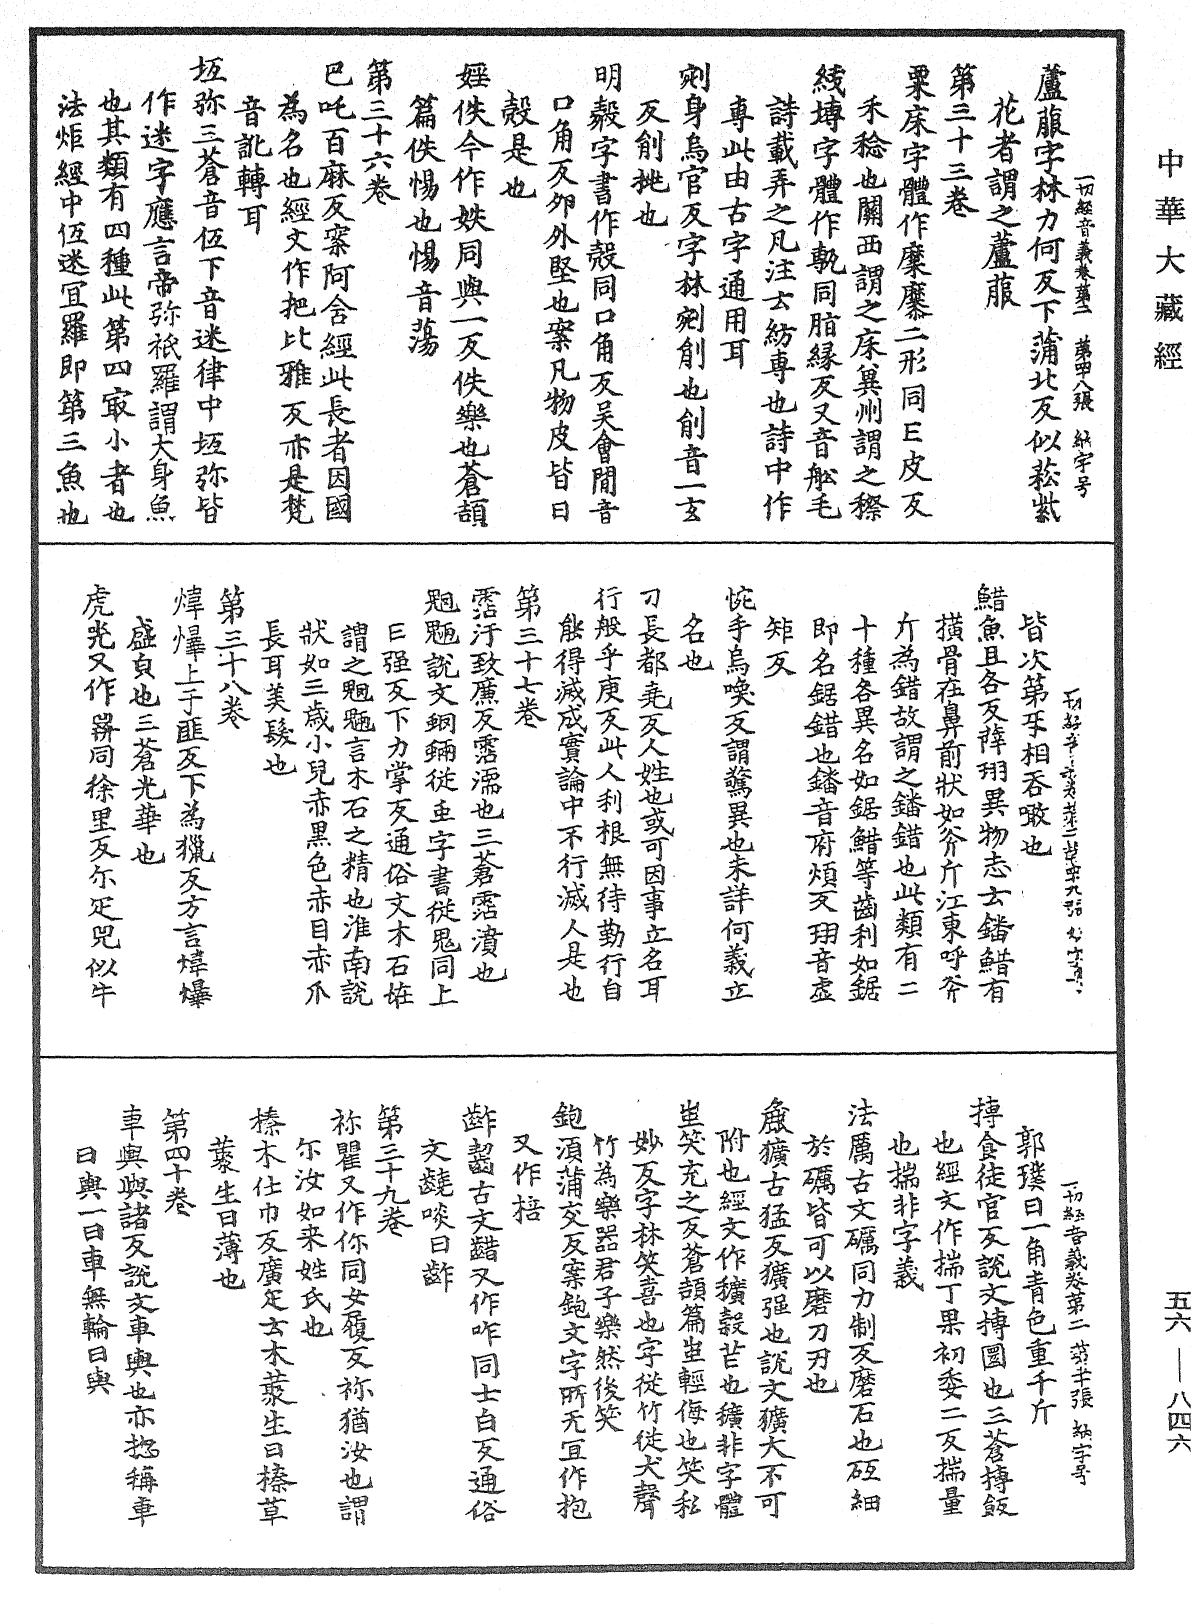 中華大藏經
一切經音義卷第二　第四八張　納字号
蘆菔字林力何反下蒲北反似菘紫
花者謂之蘆菔
第三十三卷
粟床字體作𪎭糜二形同亡皮反
禾稔也關西謂之床兾州謂之穄
綫塼字體作𤬛同脂縁反又音舩毛
詩載弄之凡注云紡專也詩中作
專此由古字通用耳
剜身烏官反字林剜削也削音一玄
反削挑也
明㲉字書作殼同口角反吳會閒音
口角反夘外堅也案凡物皮皆曰
殼是也
婬佚今作妷同與一反佚樂也蒼頡
篇佚惕也惕音蕩
第三十六卷
巴吒百麻反案阿含經此長者因國
為名也經文作把比雅反亦是梵
音訛轉耳
坘弥三蒼音低下音迷律中坘弥皆
作迷字應言帝弥祇羅謂大身魚
也其類有四種此第四㝡小者也
法炬經中伍迷冝羅即第三魚也
皆次第㸦相吞噉也
䱜魚且各反薛珝異物志云鐇䱜有
橫骨在鼻前狀如斧斤江東呼斧
斤為錯故謂之鐇錯也此類有二
十種各異名如鋸䱜等齒利如鋸
即名鋸錯也鐇音府煩反珝音虛
矩反
惋手烏喚反謂驚異也未詳何義立
名也
刁長都尭反人姓也或可因事立名耳
行般乎庚反此人利根無待勤行自
能得滅成實論中不行滅人是也
第三十七卷
霑汙致廉反霑濡也三蒼霑漬也
魍魎說文蛧蜽從虫字書從鬼同上
亡强反下力掌反通俗文木石恠
謂之魍魎言木石之精也淮南說
狀如三歲小兒赤黑色赤目赤爪
長耳美髮也
第三十八卷
煒爗上于匪反下為獵反方言煒爗
盛皃也三蒼光華也
虎兕又作𤉡同徐里反尔疋兕似牛
一切經音義卷第二　第五十張　納字号
郭璞曰一角青色重千斤
摶食徒官反說文摶圜也三蒼摶飯
也經文作揣丁果初委二反揣量
也揣非字義
法厲古文礪同力制反磨石也砥細
於礪皆可以磨刀刃也
麁獷古猛反獷强也說文獷犬不可
附也經文作穬穀芒也穬非字體
蚩笑充之反蒼頡篇蚩輕侮也笑私
妙反字林笑喜也字從竹從犬聲
竹為樂器君子樂然後笑
鉋湏蒲交反案鉋文字所无冝作抱
又作掊
齚齧古文齰又作咋同士白反通俗
文齩啖曰齚
第三十九卷
祢瞿又作你同女履反祢猶汝也謂
尔汝如来姓氏也
榛木仕巾反廣疋云木藂生曰榛草
藂生曰薄也
第四十卷
車輿輿諸反說文車輿也亦揔稱車
曰輿一曰車無輪曰輿
五六——八四六